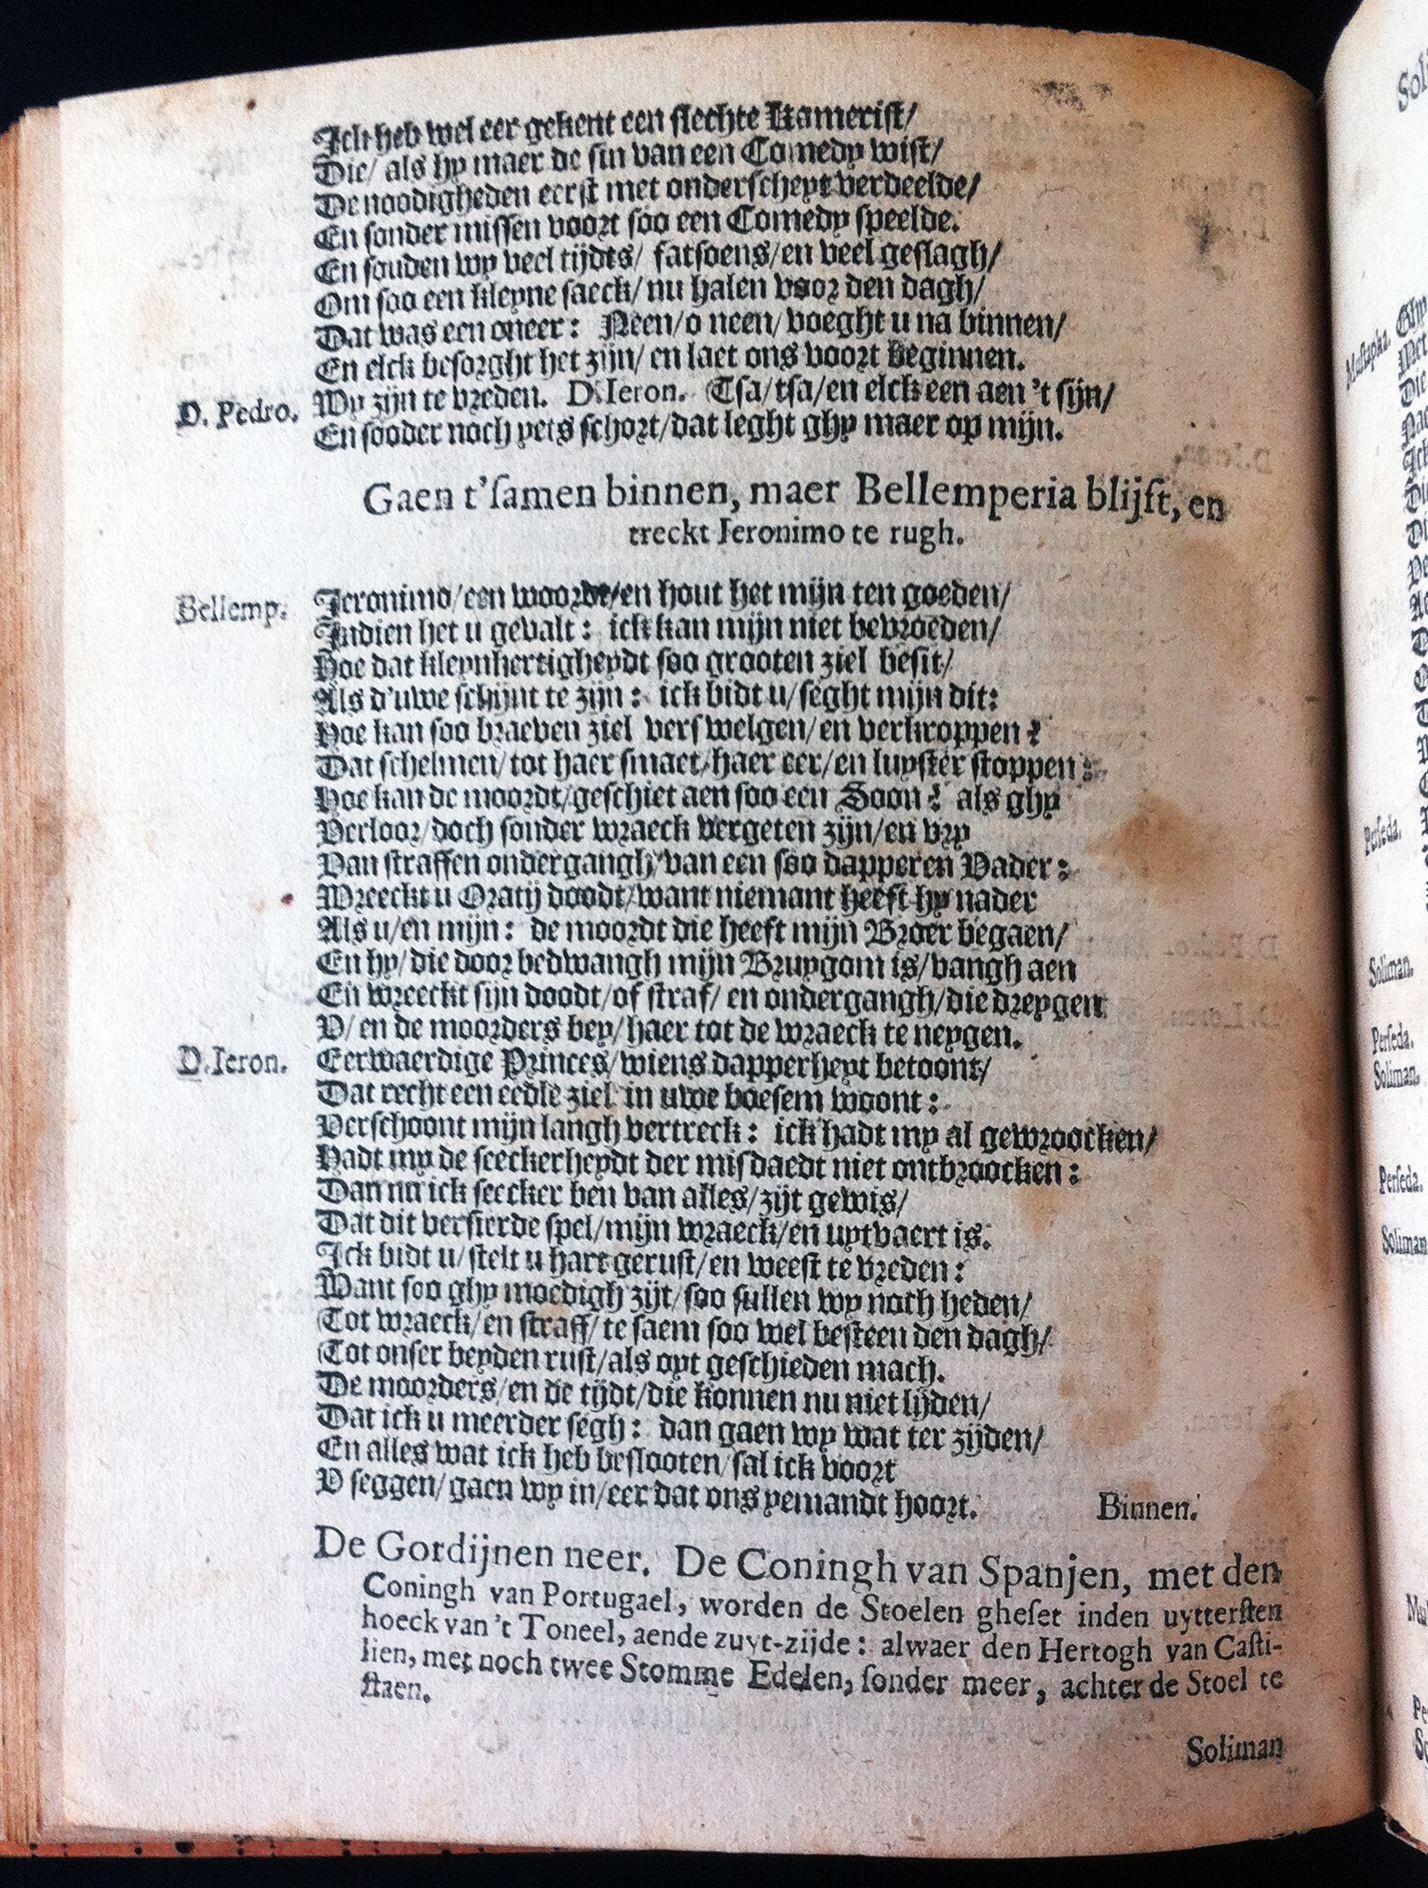 Ick heb wel eer gekent een slechte Kamerist/
Die/ als hy maer de sin van een Comedy wist/
De noodigheden eerst met onderscheyt verdeelde/
En sonder missen voort soo een Comedy speelde.
En souden wy veel tijdts/ fatsoens/en veel geslagh/
Om soo een kleyne saeck/ nu halen voor den dagh/
Dat was een oneer: Neen/o neen/ voeght u na binnen/
En elck besorght het zijn/ en laet ons voort beginnen.
D. Pedro. Wy zijn te vreden. D. Ieron. Tsa/tsa/en elck een aen 't sijn/
En sooder noch yets schort/dat leght ghy maer op mijn.
Gaen t'samen binnen, maer Bellemperia blijft, en
treckt Ieronimo te rugh.
Bellemp. Jeronimo/een woordt/en hout het mijn ten goeden/
Indien het u gevalt: ick kan mijn niet bevroeden/
Hoe dat kleynhertigheydt soo grooten ziel besit/
Als d'uwe schijnt te zijn: ick bidt u/seght mijn dit:
Hoe kan soo braeven ziel verswelgen/en verkroppen?
Dat schelmen/tot haer smaet/haer eer/en luyster stoppen:
Hoe kan de moordt/geschiet aen soo een Soon? als ghy
Verloor/doch sonder wraeck vergeten zijn/en vry
Van straffen ondergangh/van een soo dapperen Vader:
Wreeckt u Oratij doodt/want niemant heeft hy nader
Als u/en mijn: de moordt die heeft mijn Broer begaen/
En hy/die door bedwangh mijn Bruygom is/vangh aen
En wreeckt sijn doodt/of straf/ en ondergangh/die dreygen
V/ en de moorders bey/haer tot de wraeck te neygen.
D. Ieron. Eerwaerdige Princes/wiens dapperheyt betoont/
Dat recht een eedle ziel in uwe boesem woont:
Verschoont mijn langh vertreck: ick hadt my al gewroocken/
Hadt my de seeckerheydt der misdaedt niet ontbroocken:
Dan nu ick seecker ben van alles/zijt gewis/
Dat dit versierde spel/mijn wraeck/en uytvaert is.
Ick bidt u/stelt u hart gerust/en weest te vreden:
Want soo ghy moedigh zijt/soo sullen wy noch heden/
Tot wraeck/en straff/te saem soo wel besteen den dagh/
Tot onser beyden rust/als oyt geschieden mach.
De moorders/en de tijdt/die konnen nu niet lijden/
Dat ick u meerder segh: dan gaen wy wat ter zijden/
En alles wat ick heb beslooten/sal ick voort
V seggen/gaen wy in/eer dat ons yemandt hoort. Binnen.
De Gordijnen neer. De Coningh van Spanjen, met den
Coningh van Portugael, worden de Stoelen gheset inden uyttersten
hoeck van 't Toneel, aende zuyt-zijde: alwaer den Hertogh van Casti-
lien, met noch twee Stomme Edelen, sonder meer, achter de Stoel te
staen.
Soliman